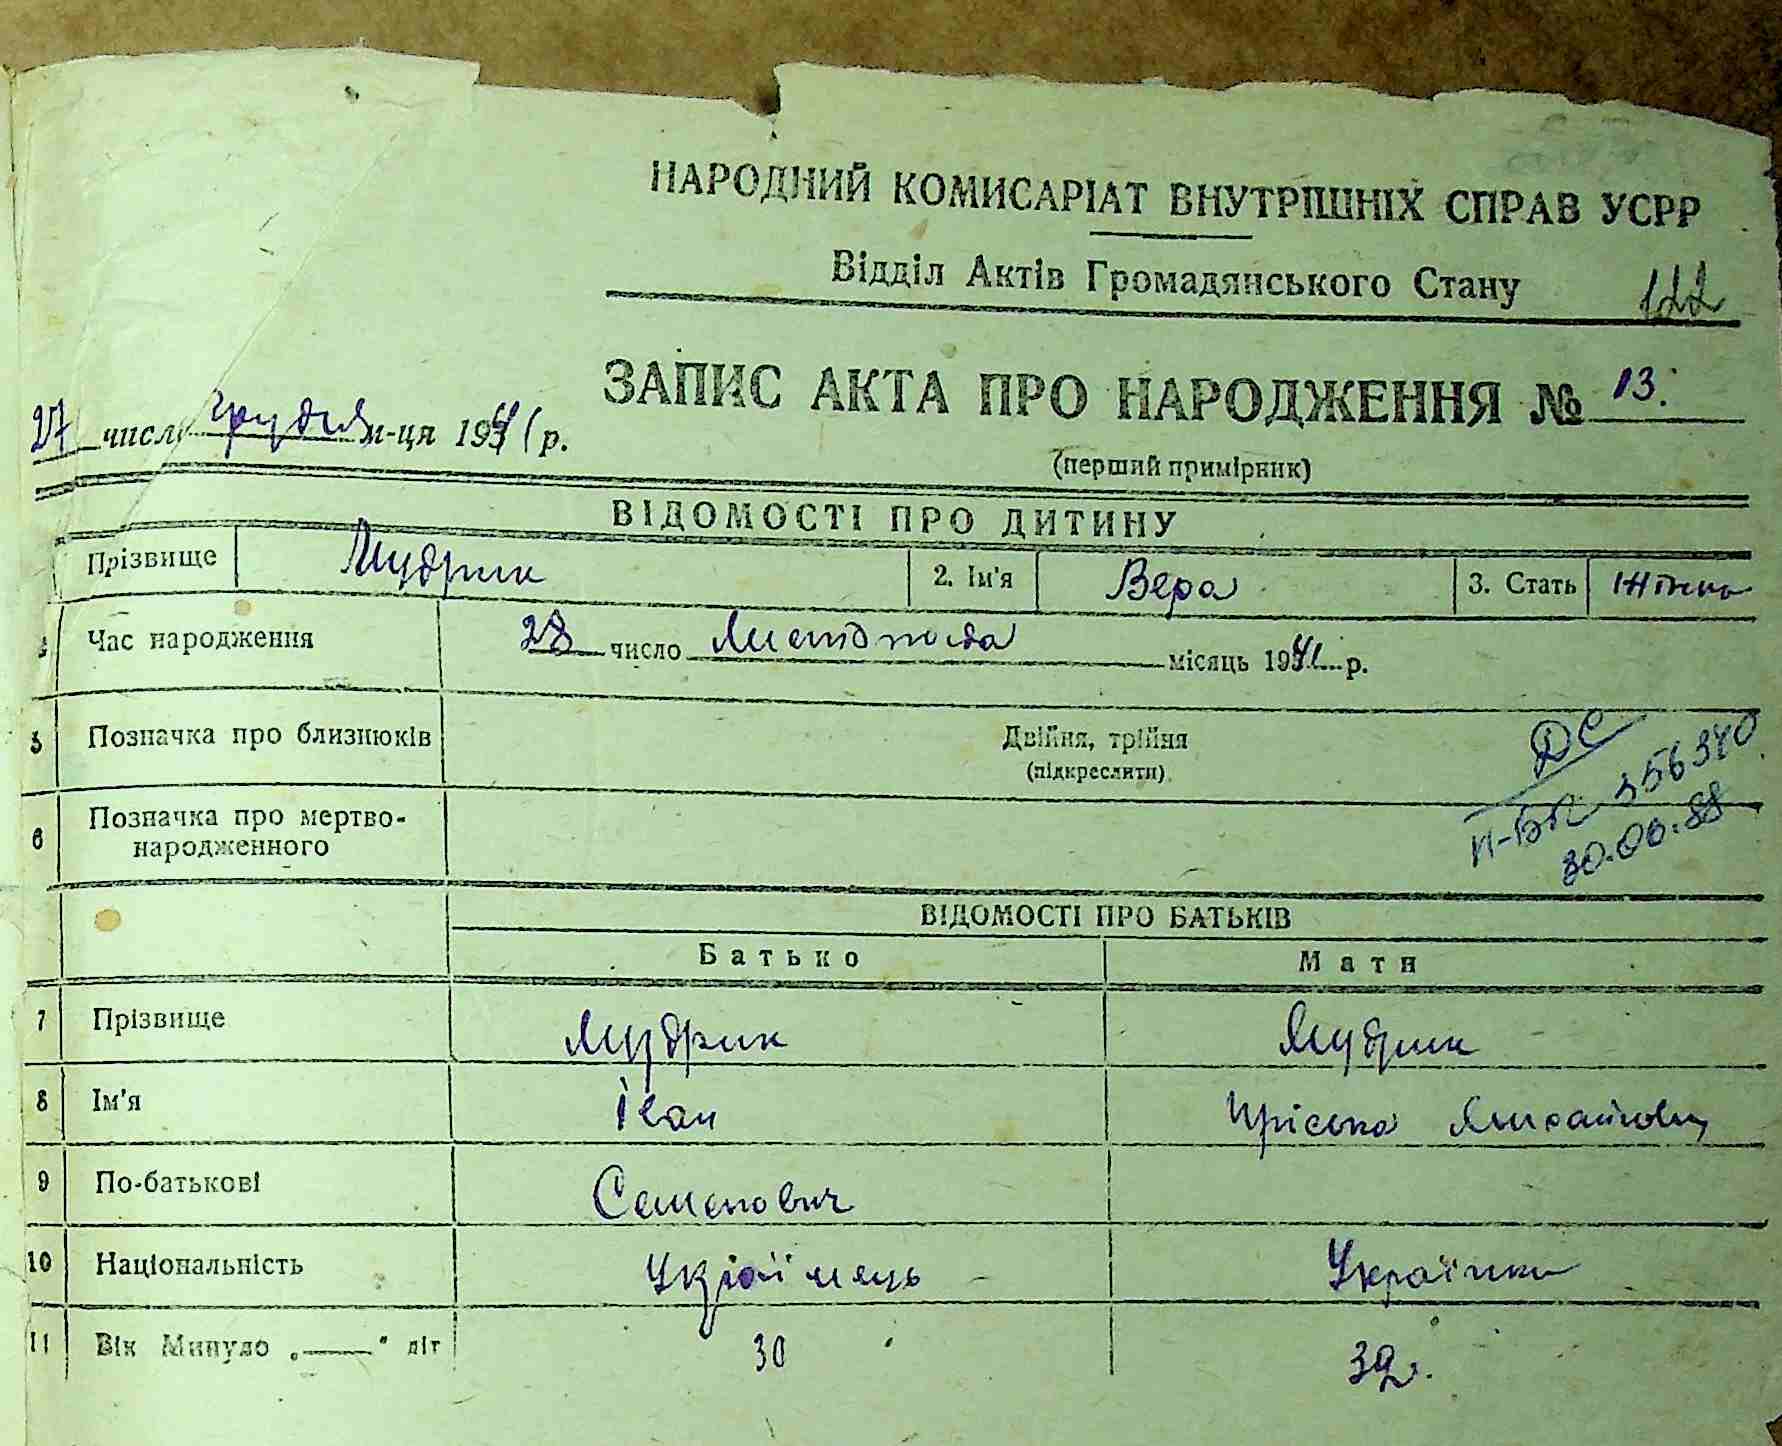 НАРОДНИЙ КОМИСАРІАТ ВНУТРІШНІХ СПРАВ УСРР
Відділ Актів Громадянського Стану
122
ЗАПИС АКТА ПРО НАРОДЖЕННЯ № 13.
27 число грудня м-ця 1941 р.
(перший примірник)
ВІДОМОСТІ ПРО ДИТИНУ
Прізвище Мудрик 2. Ім'я Вера 3. Стать Жіноч
Час народження 28 число Листопада місяць 1941 р.
5 Позначка про близнюків Двійня, трійня
(підкреслити)
ДС
356340
6 Позначка про мертво-
народженного
ВІДОМОСТІ ПРО БАТЬКІВ
Батько Мати
7 Прізвище Мудрик Мудрик
8 Ім'я Іван Пріська
9 По-батькові Семенович
10 Національність Україинець Українка
11 Вік Минуло „——" літ 30 32.